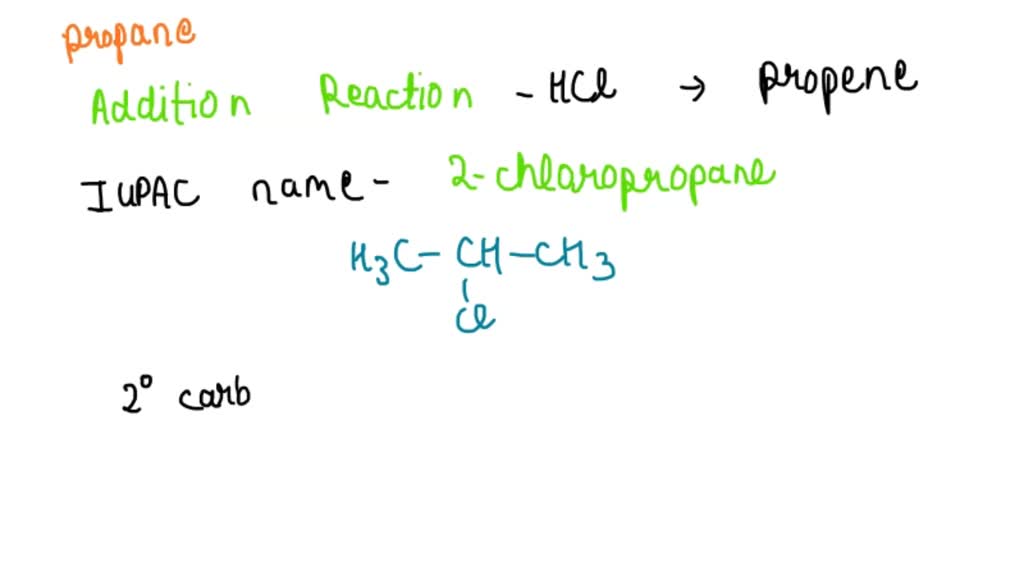 propane
Addition Reaction - HCl → propene
IUPAC name - 2-chloropropane
H3C - CH - CH3
Cl
2° carb